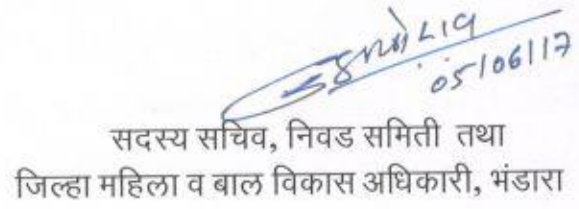 05/06/17
सदस्य सचिव, निवड समिती तथा
जिल्हा महिला व बाल विकास अधिकारी, भंडारा